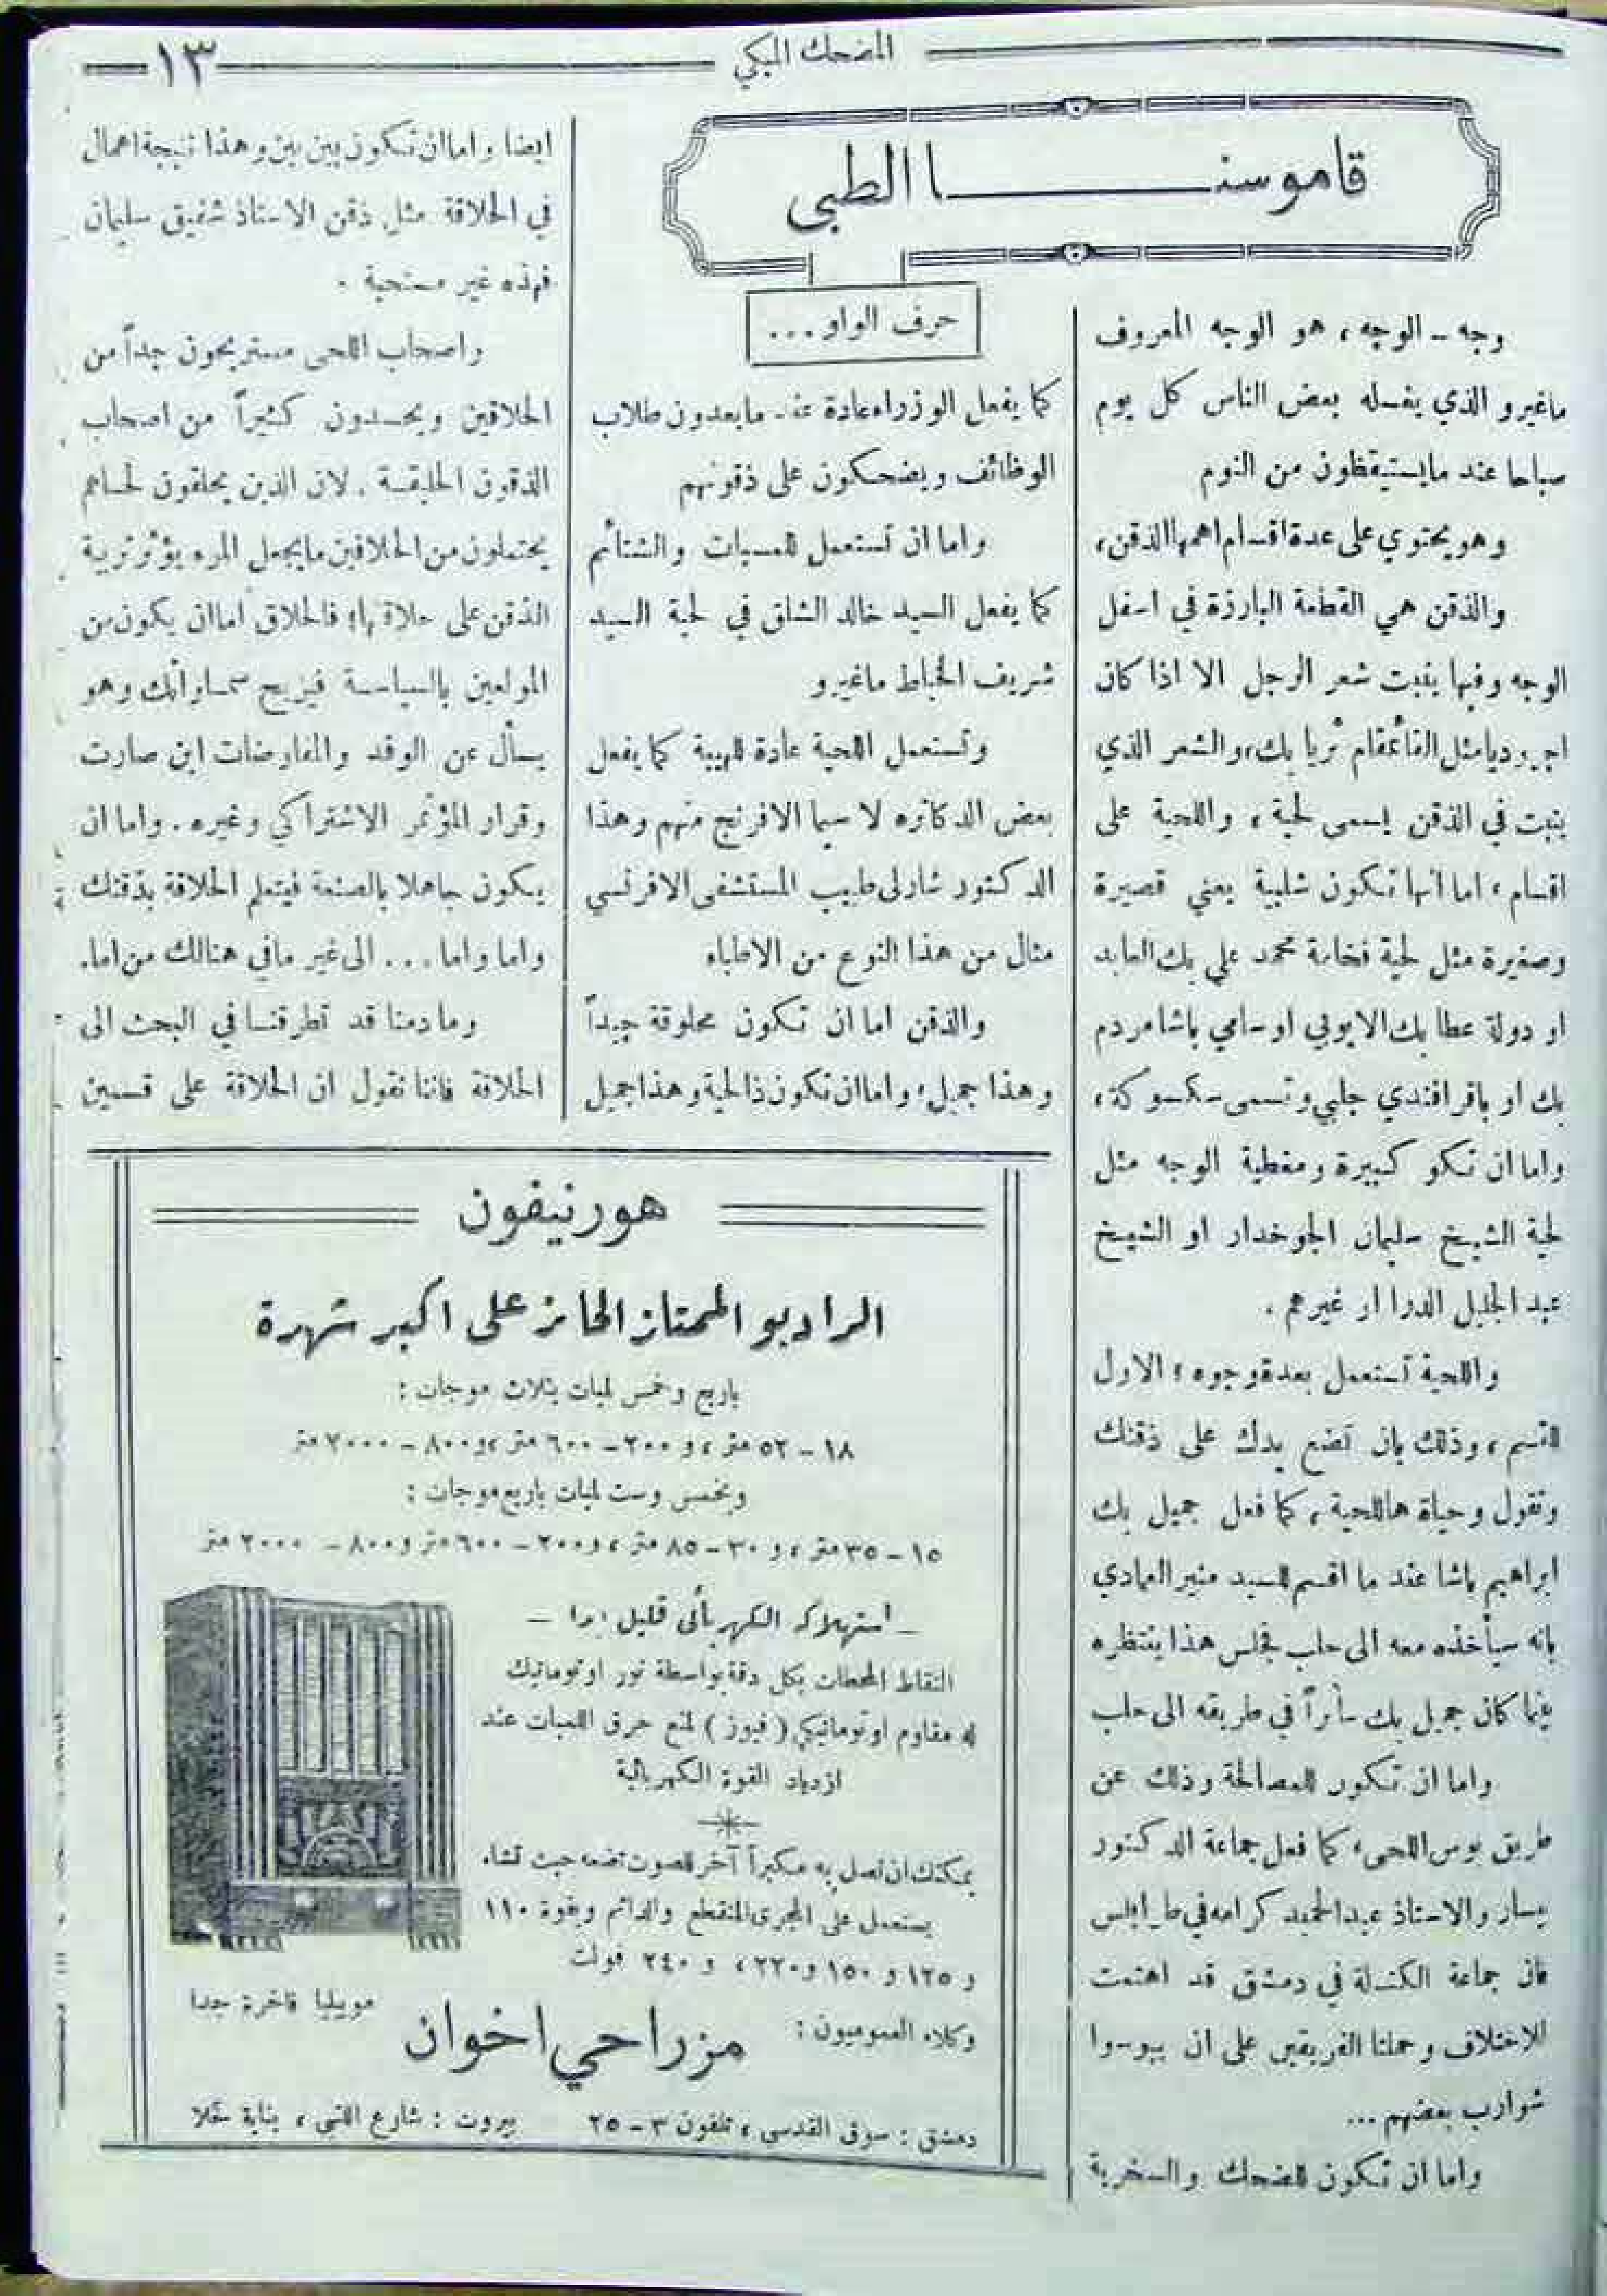 المضحك المبكي
١٣
قاموسنا الطبي
حرف الواو ...
وجه - الوجه ، هو الوجه المعروف
ماغيرو الذي يغسله بعض الناس كل يوم
صباحا عند مايستيقظون من النوم
وهو يحتوي على عدة اقسام اهمها الذقن ،
والذقن هي القطعة البارزة في اسفل
الوجه وفيها ينبت شعر الرجل الا اذا كان
اجروديا مثل القائمقام ثريا بك ، والشعر الذي
ينبت في الذقن يسمى لحية ، واللحية على
اقسام ، اما انها تكون شلبية يعني قصيرة
وصغيرة مثل لحية فخامة محمد علي بك العابد
او دولة عطا بك الايوبي او سامي باشا مردم
بك او باقر افندي جلبي وتسمى سكسوكة ،
واما ان تكو كبيرة ومغطية الوجه مثل
لحية الشيخ سليمان الجوخدار او الشيخ
عبد الجليل الدرا او غيرهم .
واللحية تستعمل بعدة وجوه ؛ الاول
للقسم ، وذلك بان تضع يدك على ذقنك
وتقول وحياة هاللحية ، كما فعل جميل بك
ابراهيم باشا عند ما اقسم للسيد منير العمادي
بانه سيأخذه معه الى حلب فجلس هذا ينتظره
بينما كان جميل بك سائراً في طريقه الى حلب
واما ان تكون للمصالحة وذلك عن
طريق بوس اللحى ، كما فعل جماعة الدكتور
بيسار والاستاذ عبد الحميد كرامه في طرابلس
فان جماعة الكتلة في دمشق قد اهتمت
للاختلاف وحملنا الفريقين على ان يبوسوا
شوارب بعضهم ...
واما ان تكون للضحك والسخرية
كما يفعل الوزراء عادة عند مايعدون طلاب
الوظائف ويضحكون على ذقونهم
واما ان تستعمل للمسبات والشتائم
كما يفعل السيد خالد الشلق في لحية السيد
شريف الخياط ماغيرو
وتستعمل اللحية عادة للهيبة كما يفعل
بعض الدكاتره لا سيما الافرنج منهم وهذا
الدكتور شارلي طبيب المستشفى الافرنسي
مثال من هذا النوع من الاطباء
والذقن اما ان تكون محلوقة جيداً
وهذا جميل ، واما ان تكون ذا لحية وهذا جميل
ايضا واما ان تكون بين بين وهذا نتيجة اهمال
في الحلاقة مثل ذقن الاستاذ شفيق سليمان
فهذه غير مستحبة .
واصحاب اللحى مستريحون جداً من
الحلاقين ويحسدون كثيراً من اصحاب
الذقون الحليقة . لان الذين يحلقون لحاهم
يحتملون من الحلاقين مايجعل المرء يؤثر تربية
الذقن على حلاقتها ؛ فالحلاق اما ان يكون من
المولعين بالسياسة فيزيح وهو
يسأل عن الوفد والمفاوضات اين صارت
وقرار المؤتمر الاشتراكي وغيره . واما ان
يكون جاهلا بالصنعة فيتعلم الحلاقة بذقنك
واما واما ... الى غير مافي هنالك من اما .
وما دمنا قد تطرقنا في البحث الى
الحلاقة فاننا نقول ان الحلاقة على قسمين
هورنيفون
الراديو الممتاز الحائز على اكبر شهرة
باربع وخمس لمبات بثلاث موجات :
١٨ - ٥٢ متر ، و ٢٠٠ - ٦٠٠ متر ، و ٨٠٠ - ٢٠٠٠ متر
وبخمس وست لمبات باربع موجات :
١٥ - ٣٥ متر ، و ٣٠ - ٨٥ متر ، و ٢٠٠ - ٦٠٠ متر و ٨٠٠ - ٢٠٠٠ متر
- استهلاكه الكهربائي قليل جدا -
التقاط المحطات بكل دقة بواسطة نور اوتوماتيك
له مقاوم اوتوماتيكي ( فيوز ) لمنع حرق اللمبات عند
ازدياد القوة الكهربائية
يمكنك ان تصل به مكبراً آخر للصوت تضعه حيث تشاء
يستعمل على المجرى المتقطع والدائم وبقوة ١١٠
و ١٢٥ و ١٥٠ و ٢٢٠ ، و ٢٤٠ فولت
موبيليا فاخرة جدا
وكلاء العموميون :
مزراحي اخوان
دمشق : سوق القدسي ، تلفون ٣ - ٢٥
بيروت : شارع اللنبي ، بناية